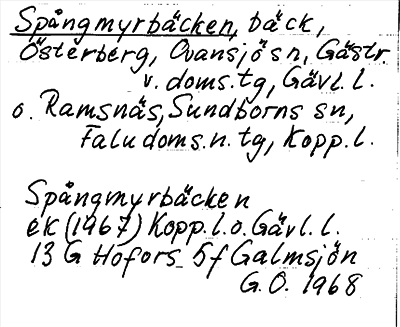 Spångmyrbäcken, bäck,
Österberg, Ovansjö sn, Gästr.
v. doms.tg, Gävl. l.
o. Ramsnäs, Sundborns sn,
Falu doms.n. tg, Kopp. l.
Spångmyrbäcken
ek (1967) Kopp. l. o. Gävl. l.
13 G Hofors 5f Galmsjön
G.O. 1968